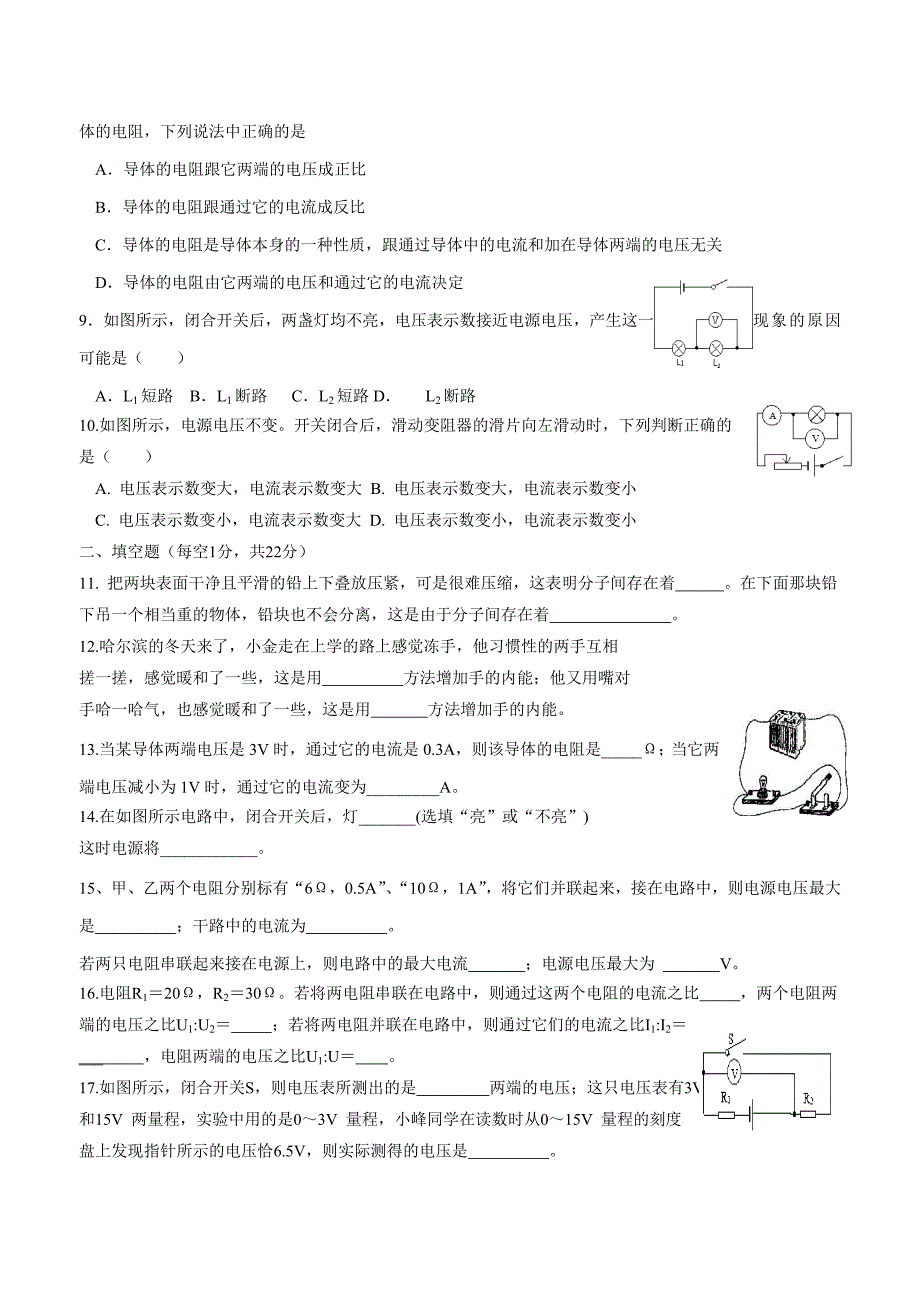 体的电阻，下列说法中正确的是
A．导体的电阻跟它两端的电压成正比
B．导体的电阻跟通过它的电流成反比
C．导体的电阻是导体本身的一种性质，跟通过导体中的电流和加在导体两端的电压无关
D．导体的电阻由它两端的电压和通过它的电流决定
9．如图所示，闭合开关后，两盏灯均不亮，电压表示数接近电源电压，产生这一现象的原因
可能是（　　）
V
L₁ L₂
A．L₁短路 B．L₁断路 C．L₂短路 D． L₂断路
10.如图所示，电源电压不变。开关闭合后，滑动变阻器的滑片向左滑动时，下列判断正确的
是（　　）
A
V
A. 电压表示数变大，电流表示数变大 B. 电压表示数变大，电流表示数变小
C. 电压表示数变小，电流表示数变大 D. 电压表示数变小，电流表示数变小
二、填空题（每空1分，共22分）
11. 把两块表面干净且平滑的铅上下叠放压紧，可是很难压缩，这表明分子间存在着______。在下面那块铅
下吊一个相当重的物体，铅块也不会分离，这是由于分子间存在着_______________。
12.哈尔滨的冬天来了，小金走在上学的路上感觉冻手，他习惯性的两手互相
搓一搓，感觉暖和了一些，这是用__________方法增加手的内能；他又用嘴对
手哈一哈气，也感觉暖和了一些，这是用_______方法增加手的内能。
13.当某导体两端电压是 3V 时，通过它的电流是 0.3A，则该导体的电阻是_____Ω；当它两
端电压减小为 1V 时，通过它的电流变为_________A。
14.在如图所示电路中，闭合开关后，灯_______(选填“亮”或“不亮”)
这时电源将____________。
15、甲、乙两个电阻分别标有“6Ω，0.5A”、“10Ω，1A”，将它们并联起来，接在电路中，则电源电压最大
是__________；干路中的电流为__________。
若两只电阻串联起来接在电源上，则电路中的最大电流_______；电源电压最大为 _______V。
16.电阻R₁＝20Ω，R₂＝30Ω。若将两电阻串联在电路中，则通过这两个电阻的电流之比_____，两个电阻两
端的电压之比U₁:U₂＝_____；若将两电阻并联在电路中，则通过它们的电流之比I₁:I₂＝
________，电阻两端的电压之比U₁:U＝____。
17.如图所示，闭合开关S，则电压表所测出的是_________两端的电压；这只电压表有3V
和15V 两量程，实验中用的是0～3V 量程，小峰同学在读数时从0～15V 量程的刻度
盘上发现指针所示的电压恰6.5V，则实际测得的电压是__________。
S
V
R₁ R₂